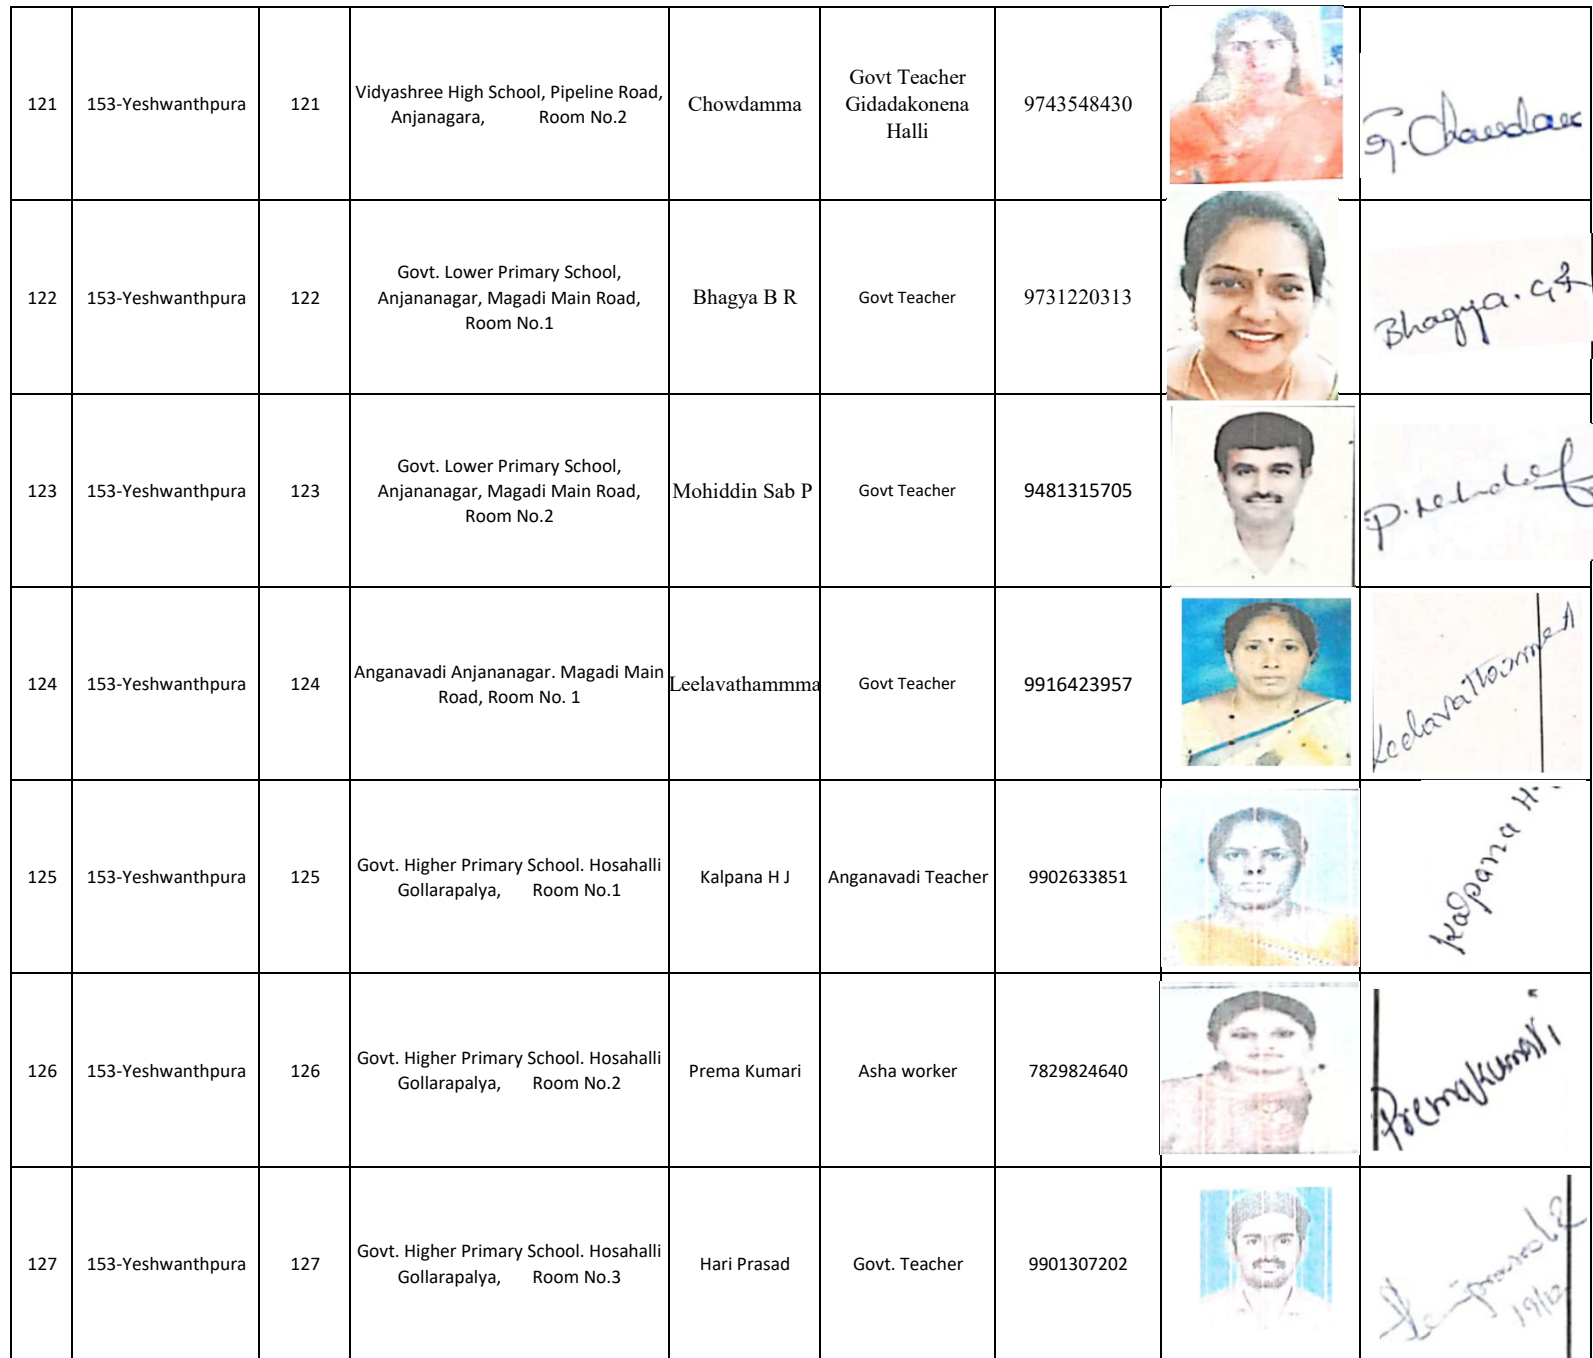 121 153-Yeshwanthpura 121 Vidyashree High School, Pipeline Road, Anjanagara, Room No.2 Chowdamma Govt Teacher Gidadakonena Halli 9743548430
122 153-Yeshwanthpura 122 Govt. Lower Primary School, Anjananagar, Magadi Main Road, Room No.1 Bhagya B R Govt Teacher 9731220313 Bhagya.
123 153-Yeshwanthpura 123 Govt. Lower Primary School, Anjananagar, Magadi Main Road, Room No.2 Mohiddin Sab P Govt Teacher 9481315705
124 153-Yeshwanthpura 124 Anganavadi Anjananagar. Magadi Main Road, Room No. 1 Leelavathammma Govt Teacher 9916423957
125 153-Yeshwanthpura 125 Govt. Higher Primary School. Hosahalli Gollarapalya, Room No.1 Kalpana H J Anganavadi Teacher 9902633851 Kalpana H.
126 153-Yeshwanthpura 126 Govt. Higher Primary School. Hosahalli Gollarapalya, Room No.2 Prema Kumari Asha worker 7829824640 Premakumari
127 153-Yeshwanthpura 127 Govt. Higher Primary School. Hosahalli Gollarapalya, Room No.3 Hari Prasad Govt. Teacher 9901307202